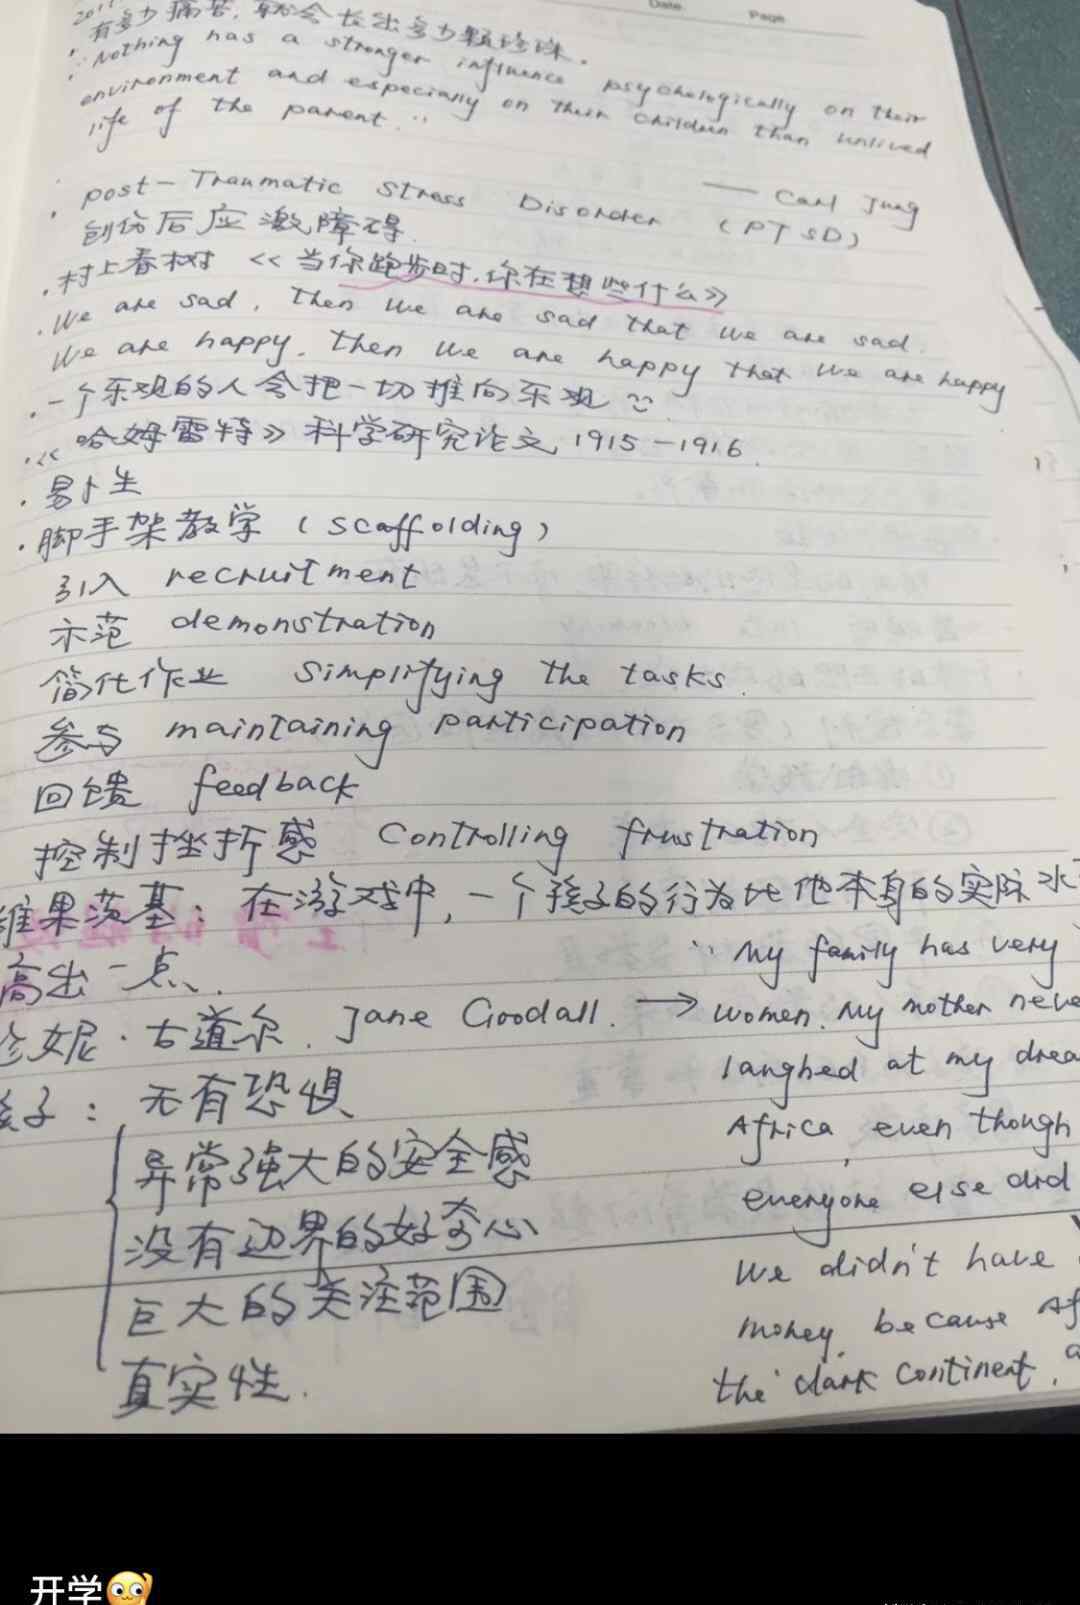 Date Page
2011
有多少痛苦,就会长出多少颗珍珠.
"Nothing has a stronger influence psychologically on their
environment and especially on their children than unlived
life of the parent."
—— Carl Jung
post-Traumatic Stress Disorder (PTSD)
创伤后应激障碍.
村上春树 《当你跑步时,你在想些什么》
We are sad, Then We are sad that we are sad.
We are happy, then We are happy that We are happy
一个乐观的人会把一切推向乐观
《哈姆雷特》科学研究论文 1915-1916.
易卜生
脚手架教学 (scaffolding)
引入 recruitment
示范 demonstration
简化作业 Simplifying the tasks.
参与 maintaining participation
回馈 feedback
控制挫折感 Controlling frustration
维果茨基: 在游戏中,一个孩子的行为比他本身的实际水
高出一点.
妮·古道尔. Jane Goodall. →
"My family has very
women. My mother neve
laughed at my drea
Africa, even though
everyone else did
We didn't have
money, because Af
the 'dark continent', a
孩子: 无有恐惧
异常强大的安全感
没有边界的好奇心
巨大的关注范围
真实性.
开学🥱